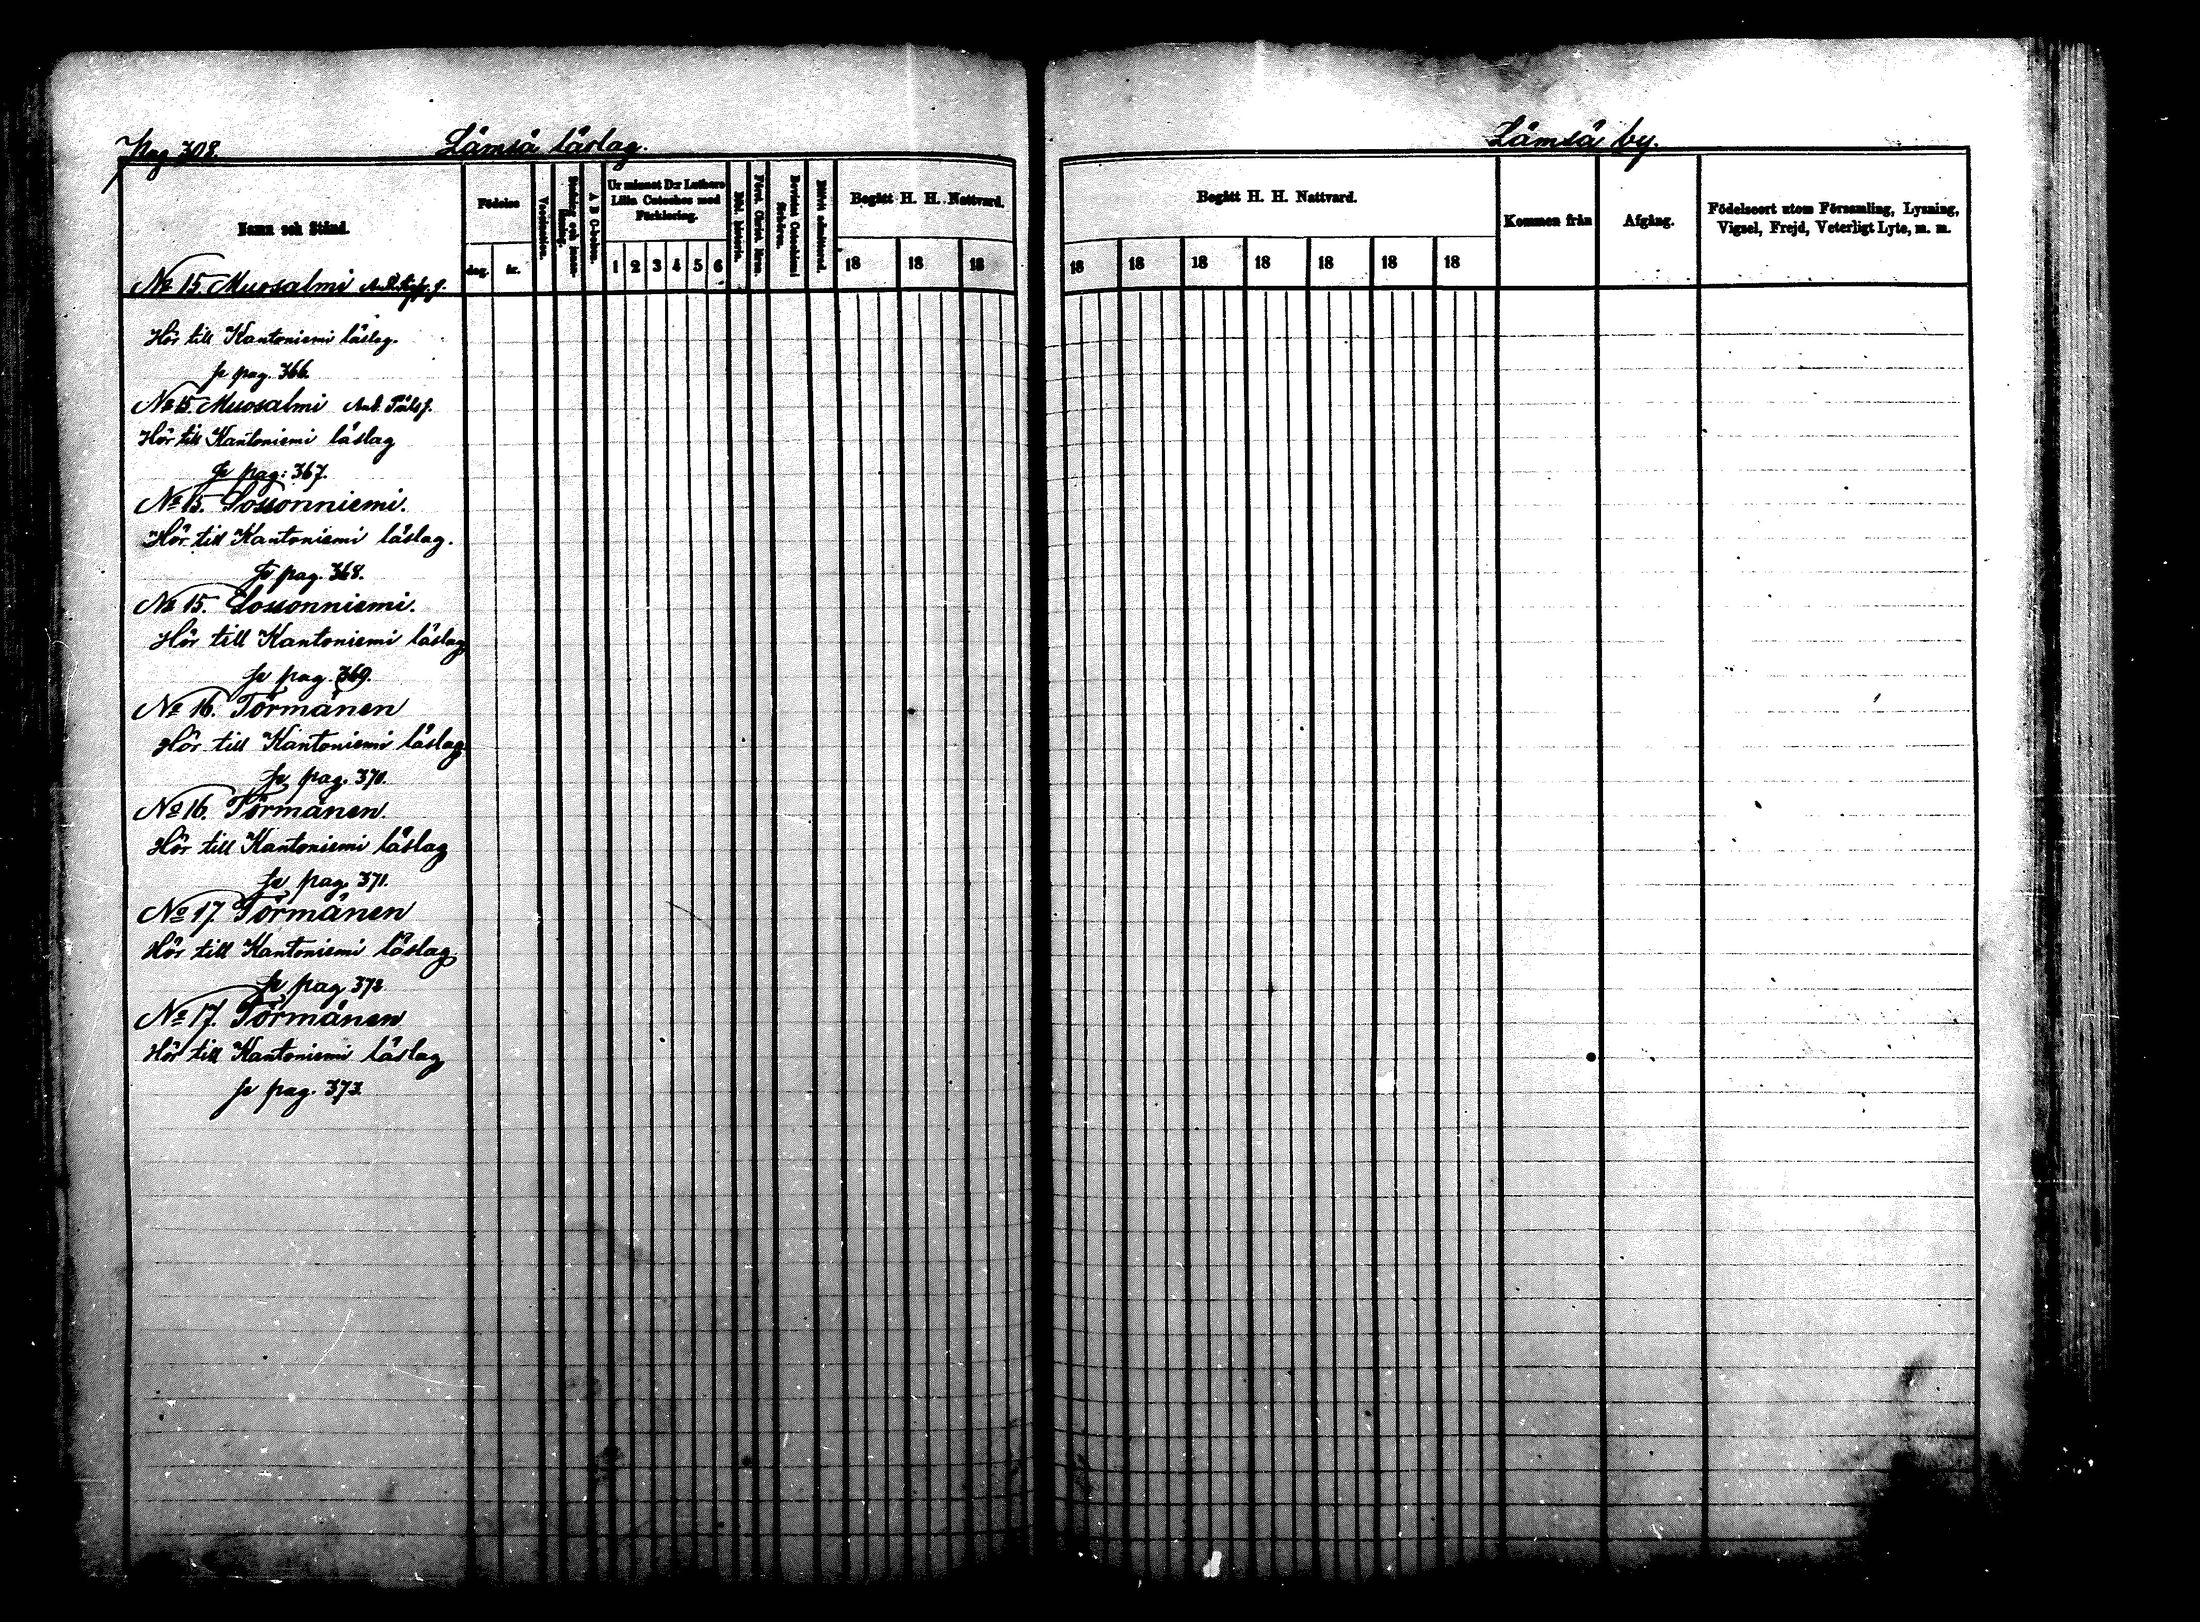 Pag 308.
Lämsä läslag.
Lämsä by.
Namn och Stånd.
Födelse
dag.
år.
Vaccination.
A B C-boken.
Ur minnet D:r Luthers
Lilla Cateches med
Förklaring.
1 2 3 4 5 6
Bibl. historia.
Begått H. H. Nattvard.
18 18 18
Begått H. H. Nattvard.
18 18 18 18 18 18 18
Kommen från
Afgång.
Födelseort utom Församling, Lysning,
Vigsel, Frejd, Veterligt Lyte, m. m.
No 15. Muosalmi
Hör till Kantoniemi läslag.
Se pag. 366.
No 15 Muosalmi And.
Hör till Kantoniemi läslag
Se pag: 367.
No 15. Sossonniemi.
Hör till Kantoniemi läslag.
Se pag. 368.
No 15. Sossonniemi.
Hör till Kantoniemi läslag
Se pag. 369.
No 16. Törmänen
Hör till Kantoniemi läslag
Se pag. 370.
No 16. Törmänen.
Hör till Kantoniemi läslag
Se pag. 371.
No 17. Törmänen
Hör till Kantoniemi läslag.
Se pag. 372
No 17. Törmänen
Hör till Kantoniemi läslag
Se pag. 373